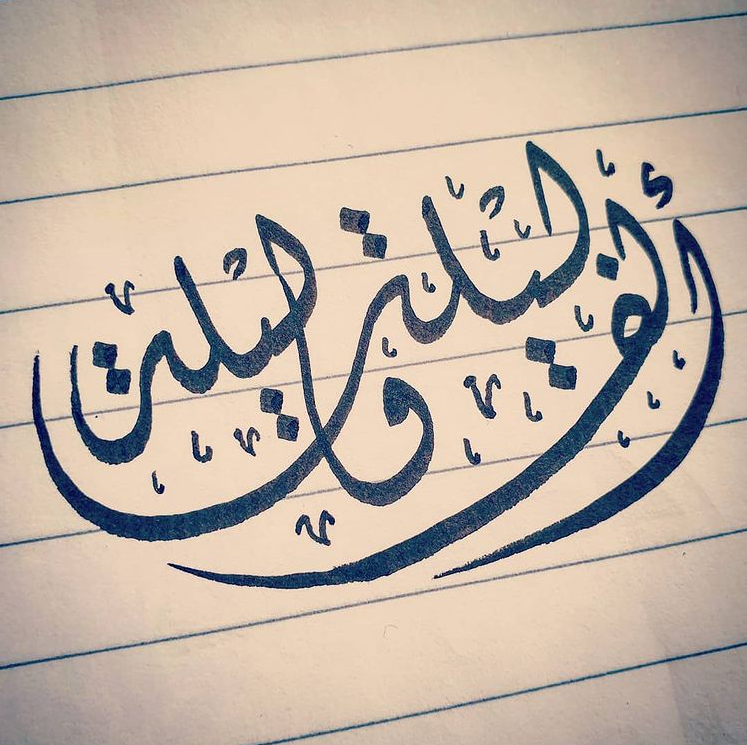 ألف ليلة وليلة